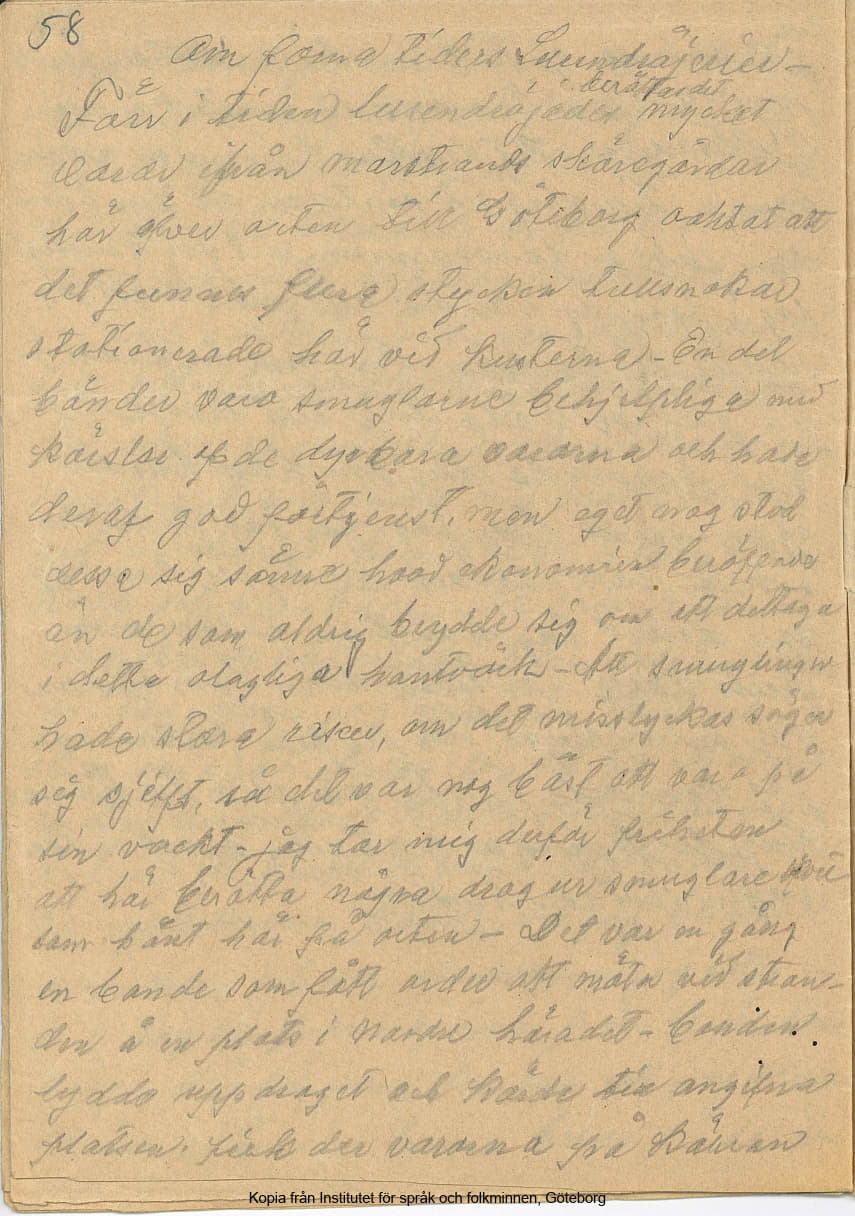 58
Om forna tiders Lurendräjerier -
berättar det
Förr i tiden lurendräjades mycket
varor ifrån marstrands skäregårdar
här öfver orten till Göteborg oaktat att
det funnes flera stycken tullsnokar
stationerade här vid kusterna - En del
bönder voro smuglarne behjelpliga med
körslor af de dyrbara varorna och hade
deraf god förtjenst, men eget nog stod
dessa sig sämre hvad ekonomien beträffade
än de som aldrig brydde sig om att deltaga
i detta olagliga hantvärk - Att smuglingen
hade stora risker, om det misslyckas säger
sig sjelft, så det var nog bäst att vara på
sin vackt - jag tar mig derför friheten
att här berätta några drag ur smuglare
som hänt här på orten - Det var en gång
en bonde som fått order att möta vid stran-
den å en plats i Nordre häradet - bonden
lydde uppdraget och körde till angifna
platsen. fick der varorna på kärran
Kopia från Institutet för språk och folkminnen, Göteborg